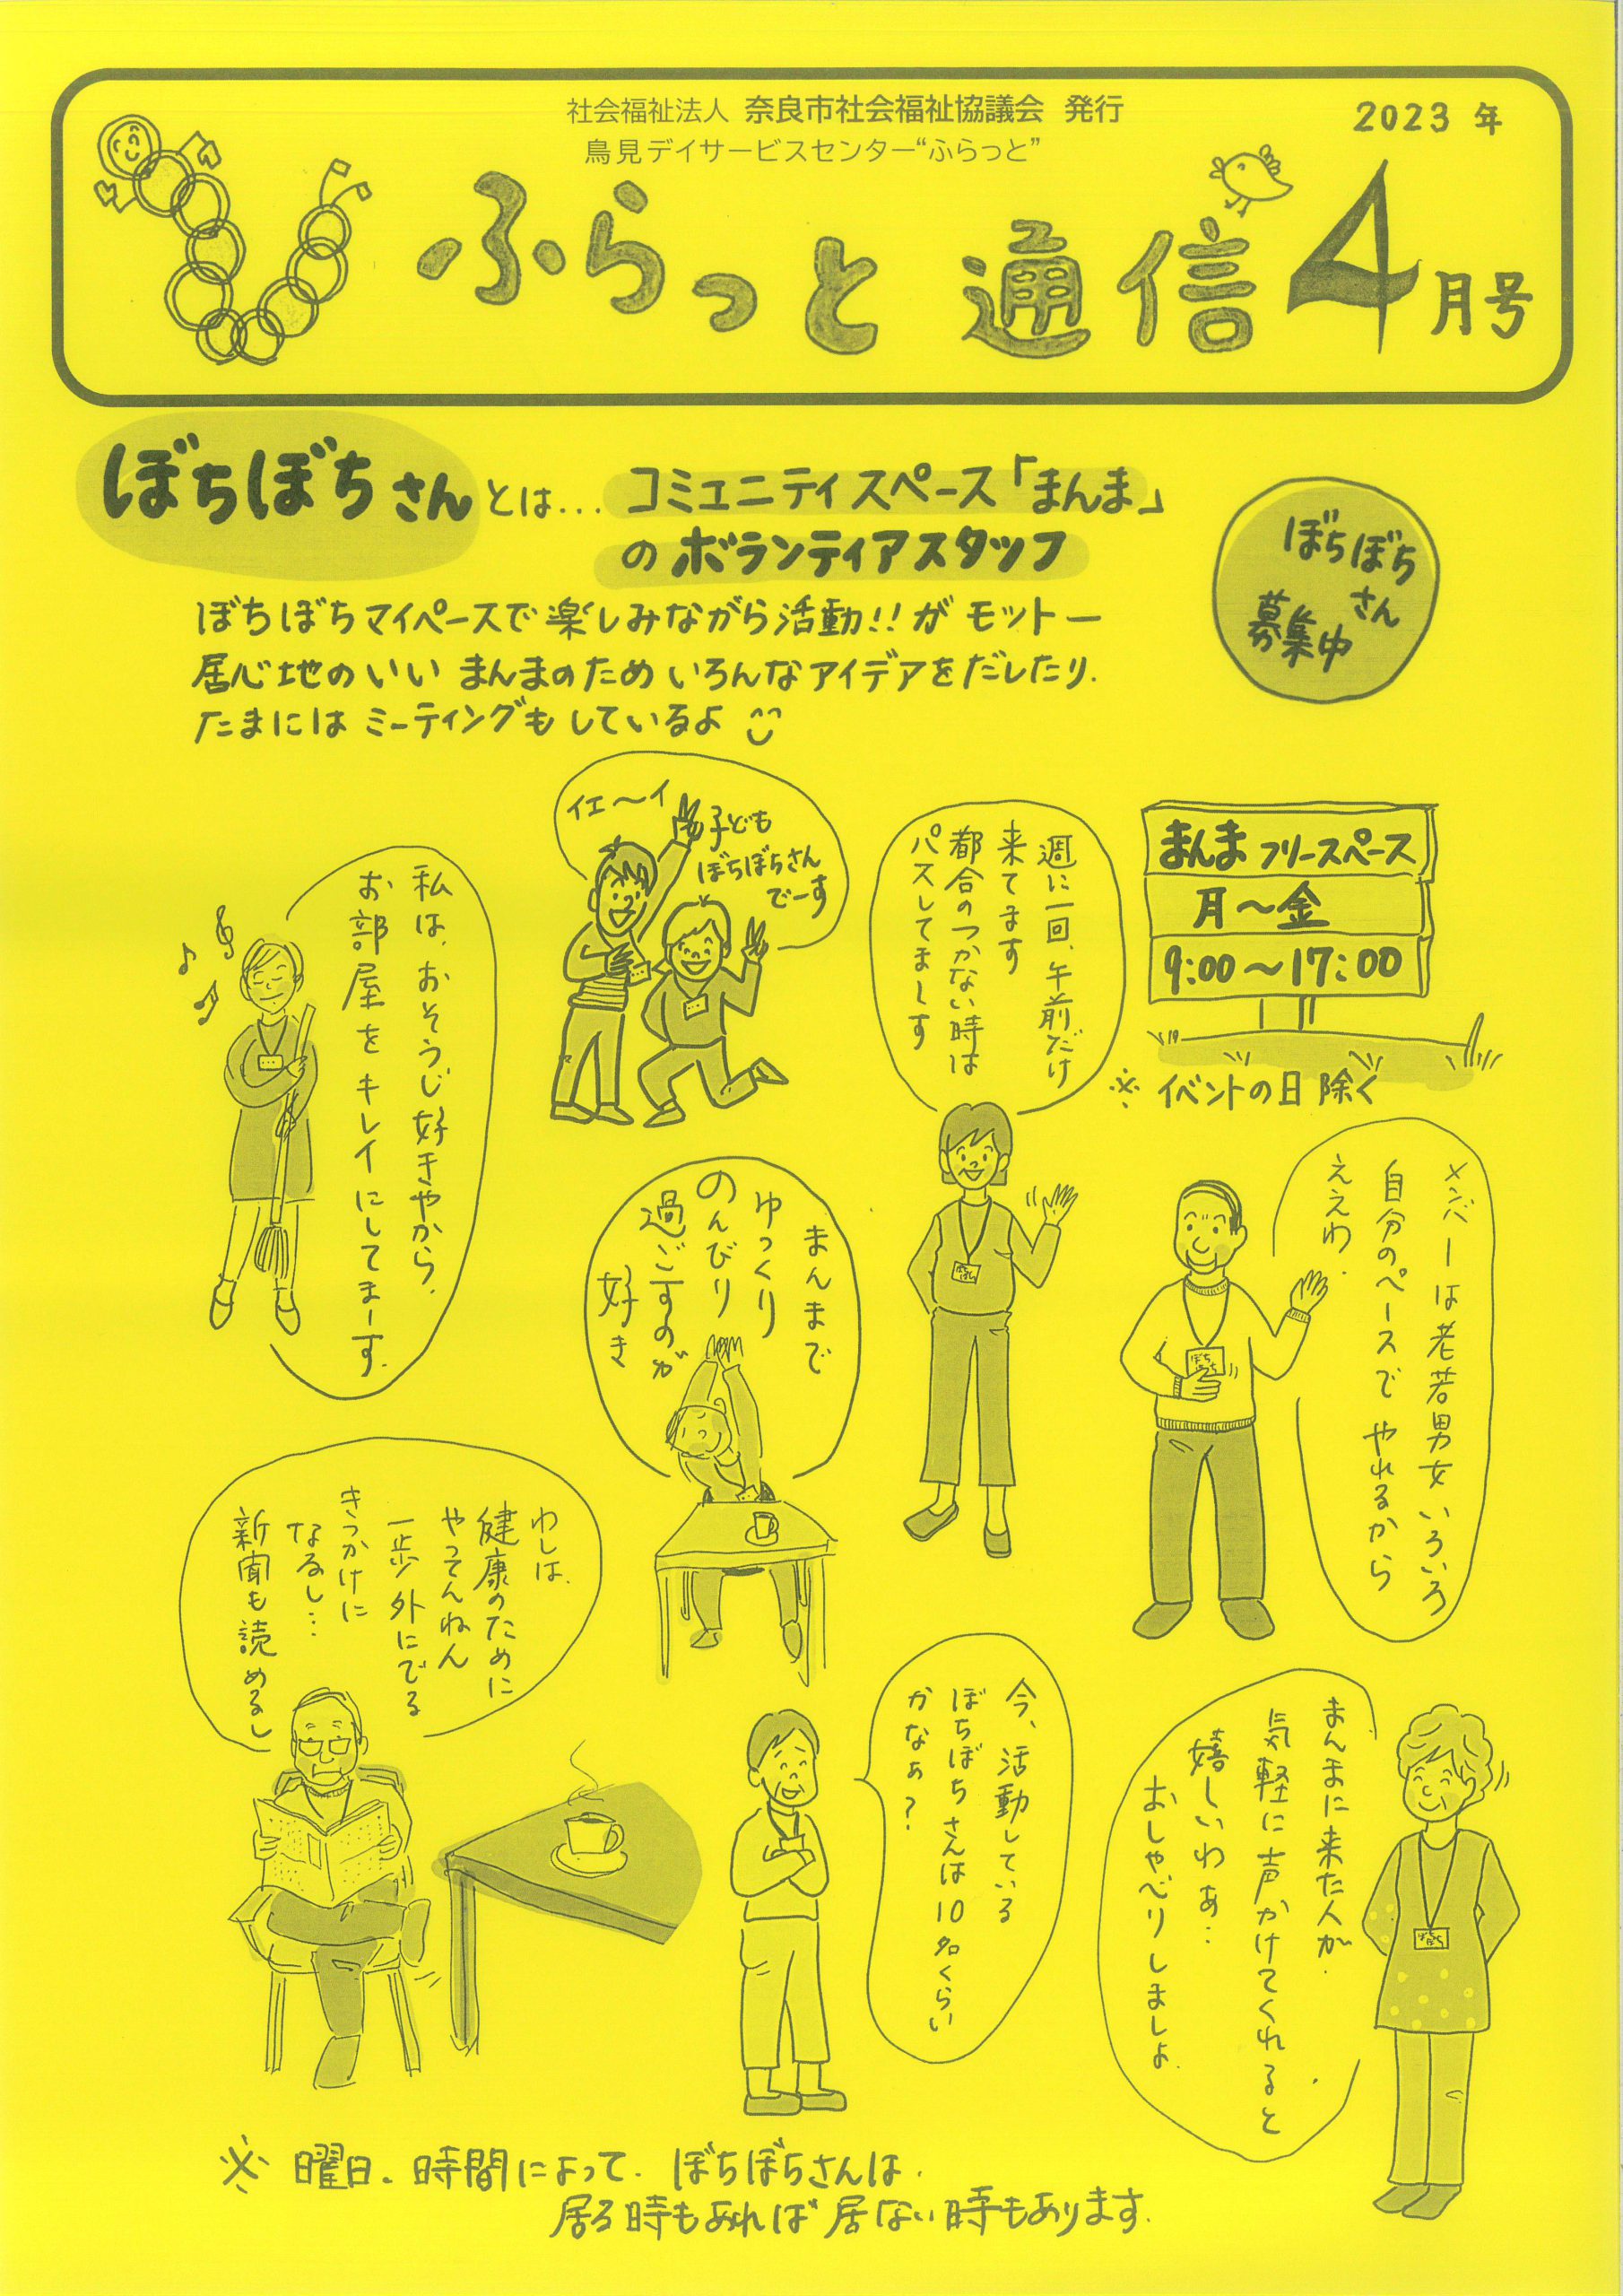 社会福祉法人 奈良市社会福祉協議会 発行
鳥見デイサービスセンター“ふらっと”
2023 年
ふらっと 通信 4月号
ぼちぼちさんとは... コミュニティスペース「まんま」
のボランティアスタッフ
ぼちぼち
さん
募集中
ぼちぼちマイペースで楽しみながら活動!!がモットー
居心地のいい まんまのため いろんなアイデアをだしたり、
たまにはミーティングもしているよ
イェ〜イ
子ども
ぼちぼちさん
でーす
週に一回、午前だけ
来てます
都合のつかない時は
パスしてまーす
まんま フリースペース
月〜金
9:00〜17:00
※ イベントの日 除く
私は、おそうじ好きやから、
お部屋をキレイにしてまーす。
まんまで
ゆっくり
のんびり
過ごすのが
好き
メンバーは老若男女いろいろ
自分のペースで やれるから
ええわ。
ぼち
ぼち
わしは、
健康のために
やってんねん
一歩外にでる
きっかけに
なるし…
新聞も読めるし
今、活動している
ぼちぼちさんは10名くらい
かなぁ?
まんまに来た人が、
気軽に声かけてくれると
嬉しいわぁ…
おしゃべりしましょ。
※ 曜日、時間によって、ぼちぼちさんは、
居る時もあれば 居ない時もあります。